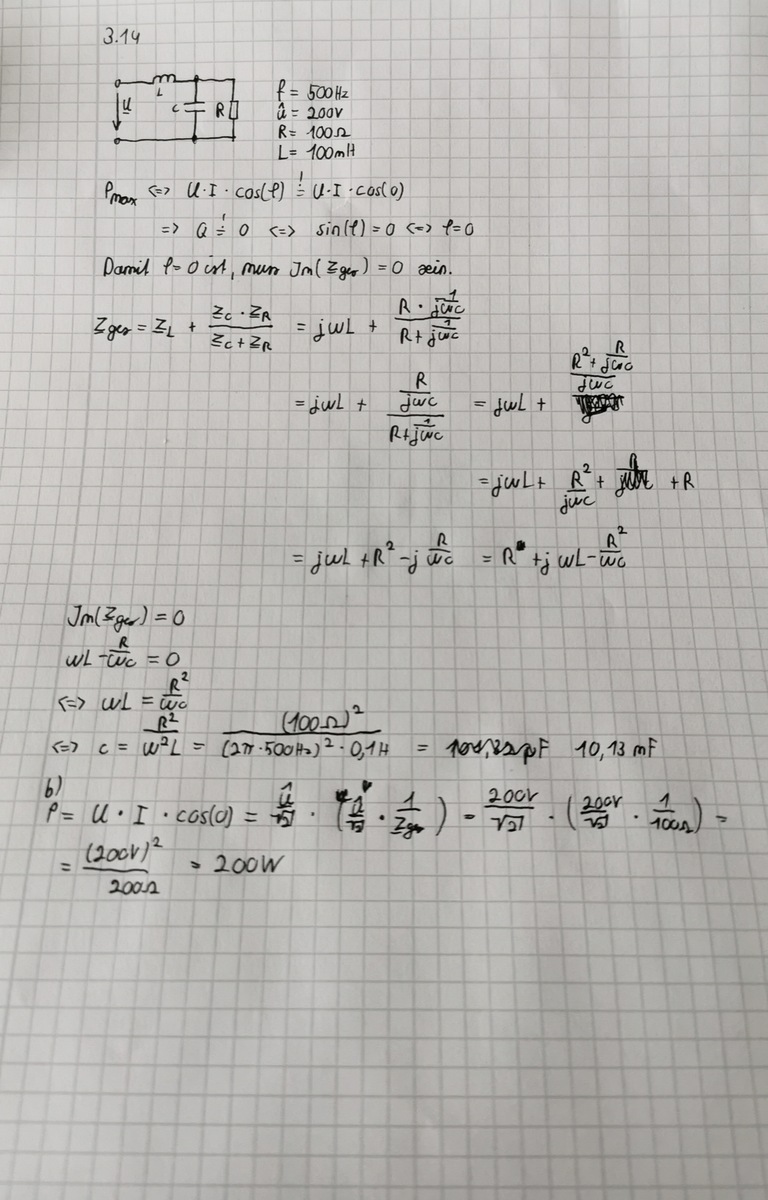 3.14
L
U C R
f = 500Hz
û = 200V
R = 100Ω
L = 100mH
P_max <=> U·I·cos(φ) =! U·I·cos(0)
=> Q =! 0 <=> sin(φ) = 0 <=> φ=0
Damit φ=0 ist, muss Im(Z_ges) = 0 sein.
Z_ges = Z_L + (Z_C · Z_R)/(Z_C + Z_R) = jωL + (R · 1/(jωC))/(R + 1/(jωC))
= jωL + (R/(jωC))/(R + 1/(jωC)) = jωL + (R² + R/(jωC))/(jωC)
= jωL + R²/(jωC) + + R
= jωL + R² - j R/(ωC) = R + j ωL - R²/(ωC)
Im(Z_ges) = 0
ωL - R/(ωC) = 0
<=> ωL = R²/(ωC)
<=> C = R²/(ω²L) = (100Ω)²/((2π·500Hz)² · 0,1H) = 10,13 mF
b)
P = U · I · cos(0) = û/√2 · (û/√2 · 1/Z_ges) = 200V/√2 · (200V/√2 · 1/100Ω) =
= (200V)²/200Ω = 200W